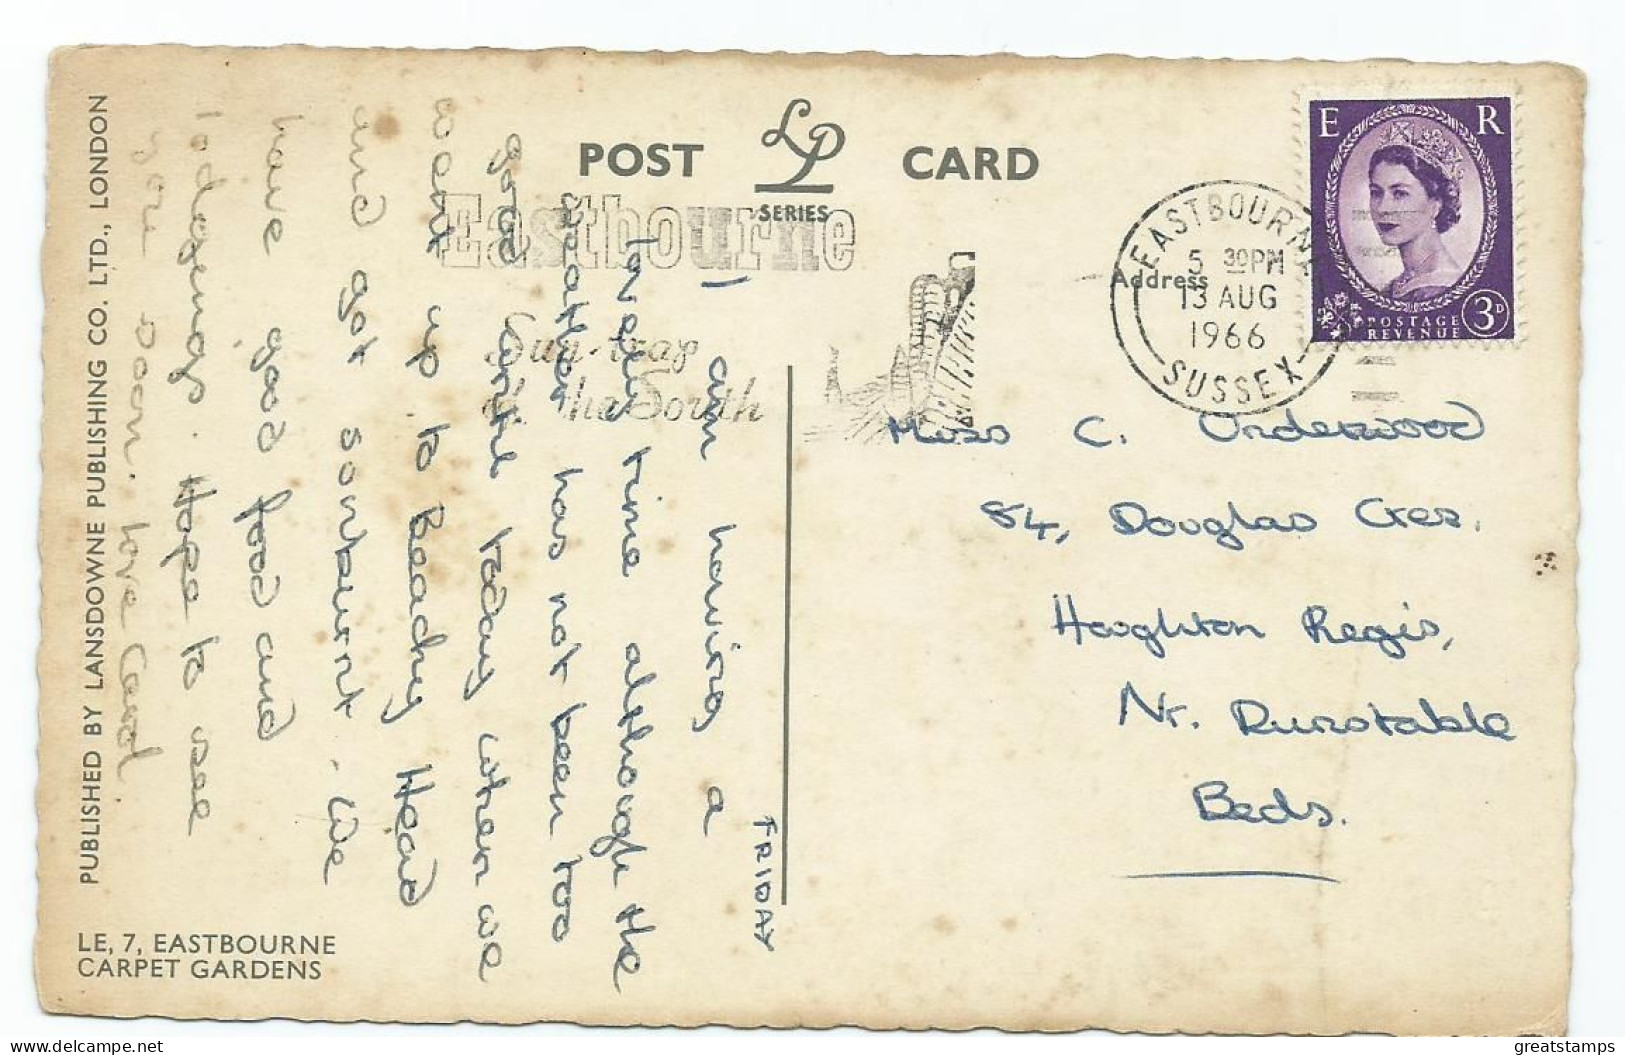 POST CARD
LP
SERIES
Eastbourne
Sun-trap
of the South
EASTBOURNE
5 30PM
13 AUG
1966
SUSSEX
E R
POSTAGE
REVENUE
3D
Address
FRIDAY
I am having a
lovely time although the
weather has not been too
good until today when we
went up to Beachy Head
and got sunburnt. We
have good food and
lodgings. Hope to see
you soon. love Carol
Miss C. Underwood
84, Douglas Cres.
Houghton Regis,
Nr. Dunstable
Beds.
PUBLISHED BY LANSDOWNE PUBLISHING CO. LTD., LONDON
LE, 7, EASTBOURNE
CARPET GARDENS
delcampe.net
greatstamps